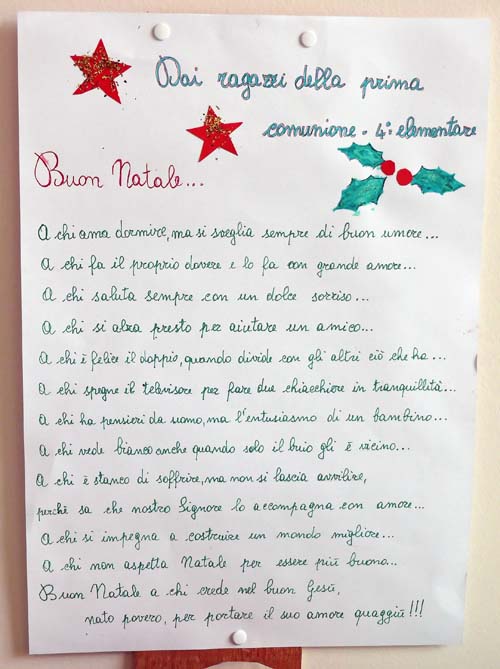 Dai ragazzi della prima
comunione - 4ª elementare
Buon Natale...
A chi ama dormire, ma si sveglia sempre di buon umore...
A chi fa il proprio dovere e lo fa con grande amore...
A chi saluta sempre con un dolce sorriso...
A chi si alza presto per aiutare un amico...
A chi è felice il doppio, quando divide con gli altri ciò che ha...
A chi spegne il televisore per fare due chiacchiere in tranquillità...
A chi ha pensieri da uomo, ma l'entusiasmo di un bambino...
A chi vede bianco anche quando solo il buio gli è vicino...
A chi è stanco di soffrire, ma non si lascia avvilire,
perchè sa che nostro Signore lo accompagna con amore...
A chi si impegna a costruire un mondo migliore...
A chi non aspetta Natale per essere più buono...
Buon Natale a chi crede nel buon Gesù,
nato povero, per portare il suo amore quaggiù!!!